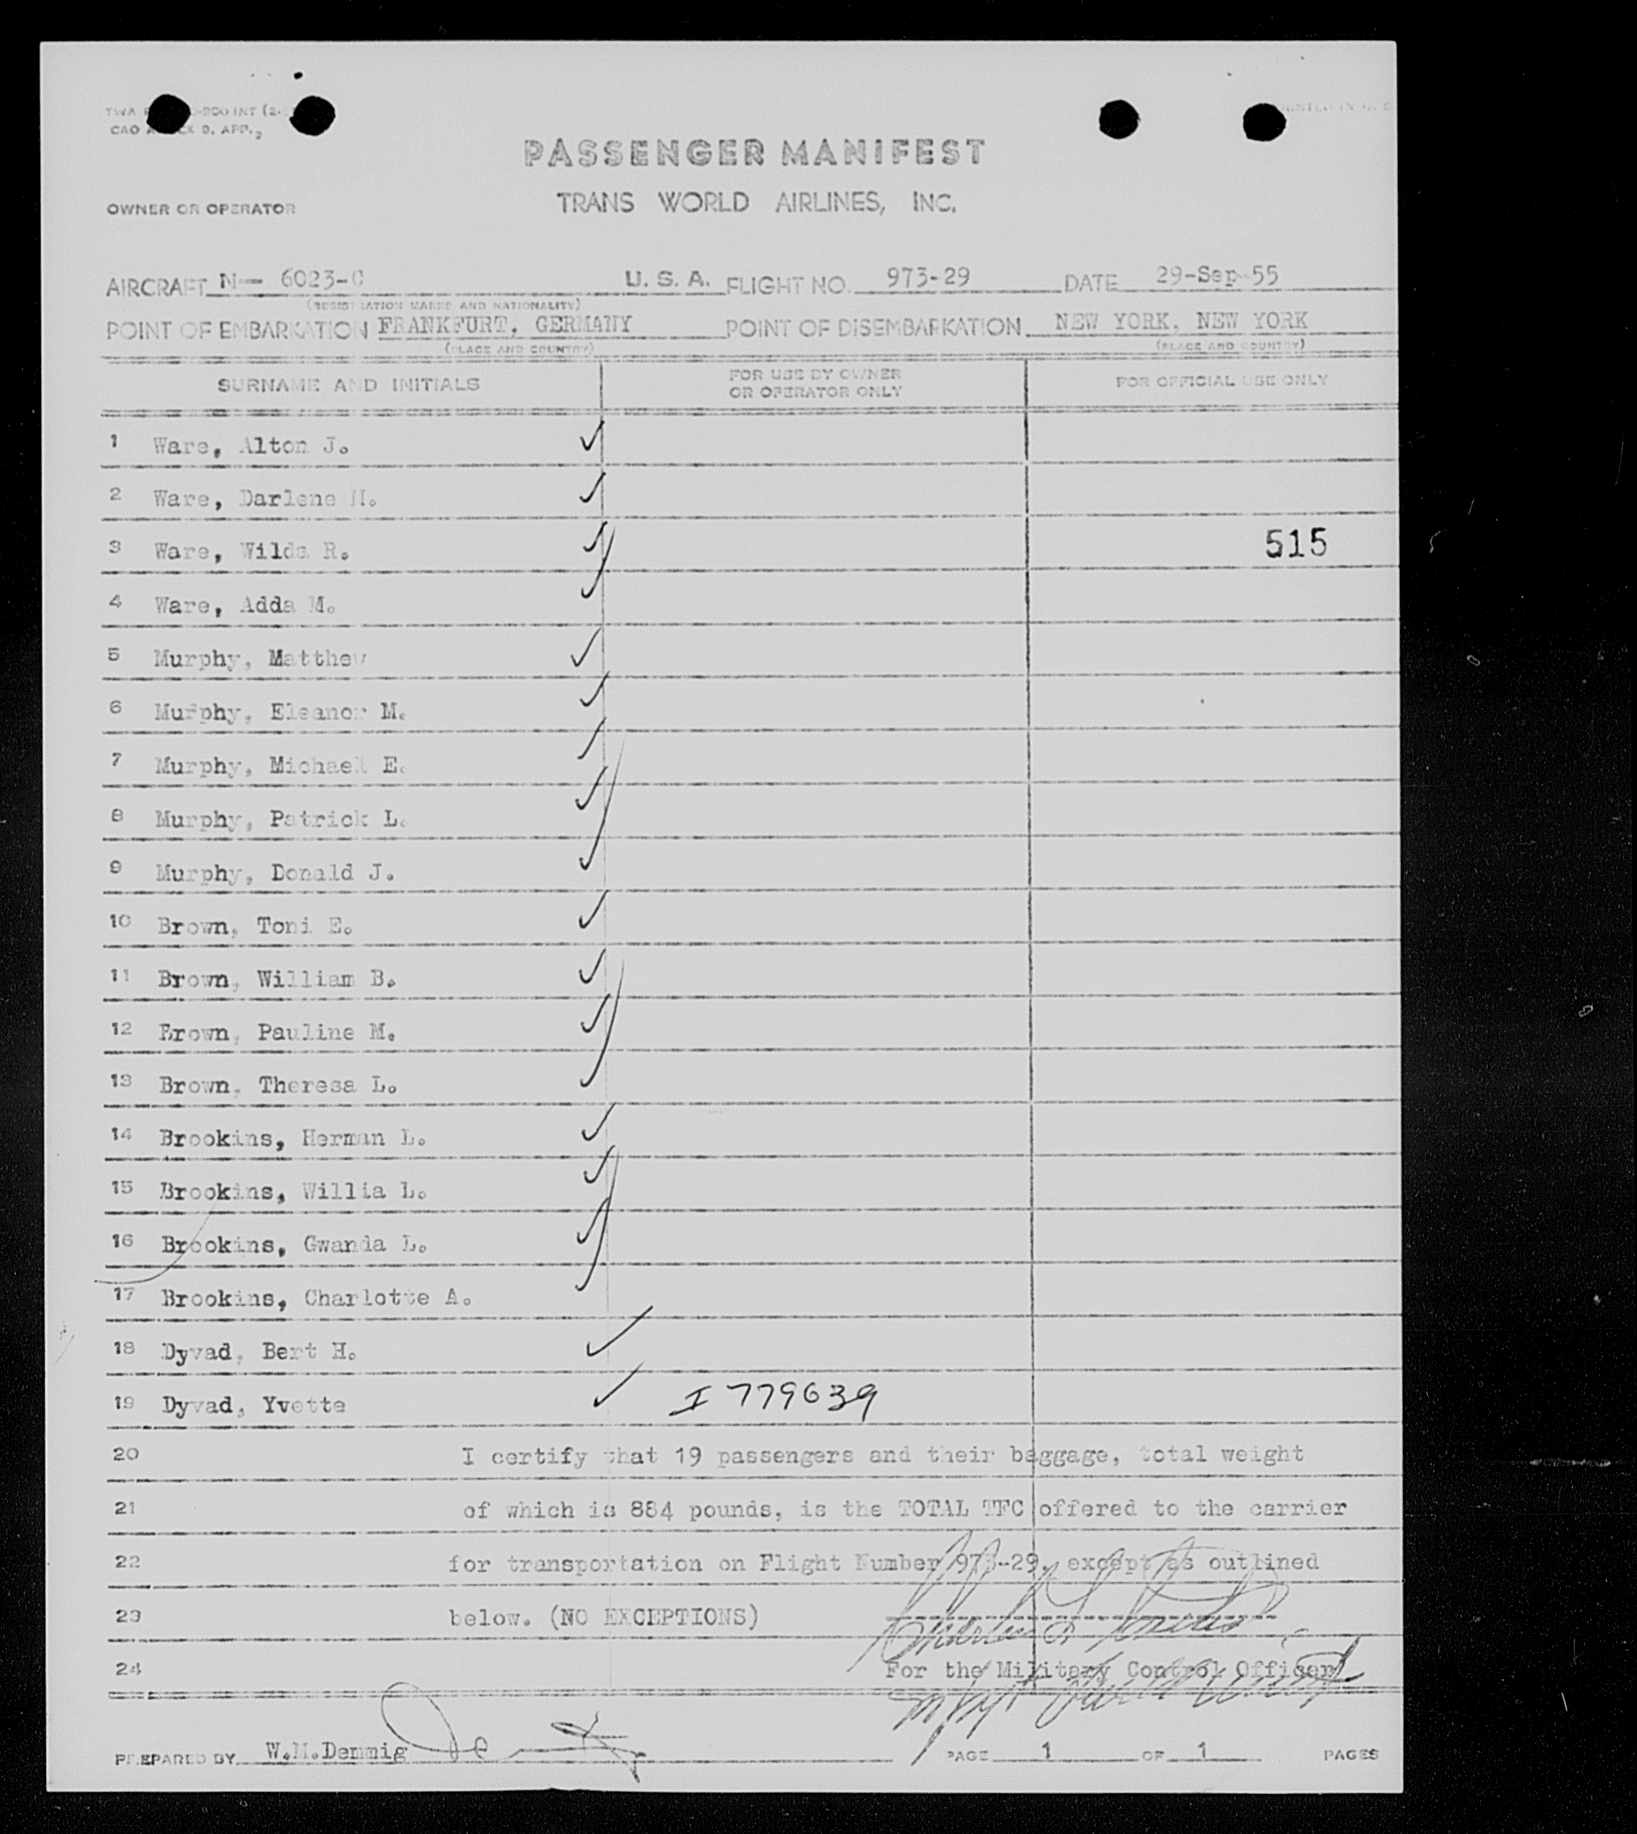 CAO
PASSENGER MANIFEST
OWNER OR OPERATOR
TRANS WORLD AIRLINES, INC.
AIRCRAFT N- 6023-C U. S. A. FLIGHT NO. 973-29 DATE 29-Sep-55
(REGISTRATION MARKS AND NATIONALITY)
POINT OF EMBARKATION FRANKFURT, GERMANY POINT OF DISEMBARKATION NEW YORK, NEW YORK
(PLACE AND COUNTRY) (PLACE AND COUNTRY)
SURNAME AND INITIALS FOR USE BY OWNER OR OPERATOR ONLY FOR OFFICIAL USE ONLY
1 Ware, Alton J.
2 Ware, Darlene M.
3 Ware, Wilda R. 515
4 Ware, Adda M.
5 Murphy, Matthew
6 Murphy, Eleanor M.
7 Murphy, Michael E.
8 Murphy, Patrick L.
9 Murphy, Donald J.
10 Brown, Toni E.
11 Brown, William B.
12 Brown, Pauline M.
13 Brown, Theresa L.
14 Brookins, Herman L.
15 Brookins, Willia L.
16 Brookins, Gwanda L.
17 Brookins, Charlotte A.
18 Dyvad, Bert H.
19 Dyvad, Yvette I 779639
20 I certify that 19 passengers and their baggage, total weight
21 of which is 884 pounds, is the TOTAL TFC offered to the carrier
22 for transportation on Flight Number 973-29, except as outlined
23 below. (NO EXCEPTIONS)
24 For the Military Control Officer
PREPARED BY W.M.Demmig PAGE 1 OF 1 PAGES